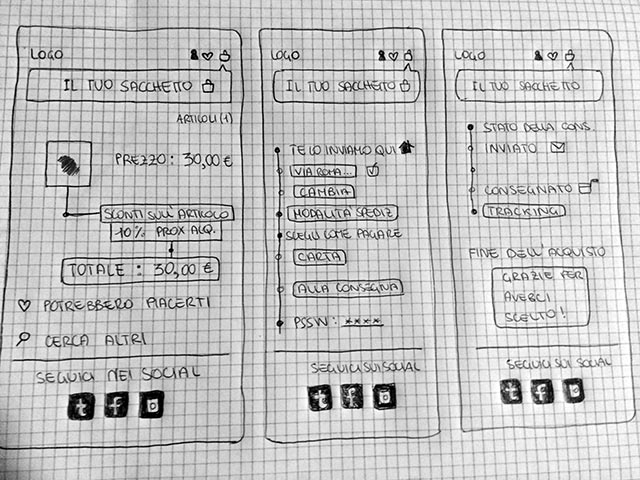 LOGO
IL TUO SACCHETTO
ARTICOLI (1)
PREZZO : 30,00 €
SCONTI SULL'ARTICOLO
-10% PROX ACQ.
TOTALE : 30,00 €
POTREBBERO PIACERTI
CERCA ALTRI
SEGUICI NEI SOCIAL
t f
LOGO
IL TUO SACCHETTO
TE LO INVIAMO QUI
VIA ROMA...
CAMBIA
MODALITÀ SPEDIZ
SCEGLI COME PAGARE
CARTA
ALLA CONSEGNA
PSSW : ****
SEGUICI SUI SOCIAL
t f
LOGO
IL TUO SACCHETTO
STATO DELLA CONS.
INVIATO
CONSEGNATO
TRACKING
FINE DELL'ACQUISTO
GRAZIE PER
AVERCI
SCELTO!
SEGUICI SUI SOCIAL
t f